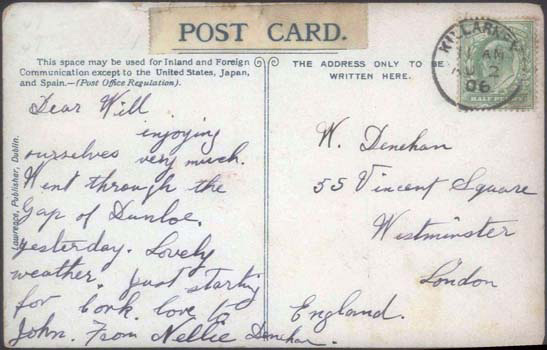 POST CARD.
This space may be used for Inland and Foreign
Communication except to the United States, Japan,
and Spain.—(Post Office Regulation).
THE ADDRESS ONLY TO BE
WRITTEN HERE.
KILLARNEY
AM
2
06
HALF PENNY
Lawrence, Publisher, Dublin.
Dear Will
enjoying
ourselves very much.
Went through the
Gap of Dunloe.
yesterday. Lovely
weather. Just starting
for Cork. love to
John. From Nellie Denehan.
W. Denehan
55 Vincent Square
Westminster
London
England.